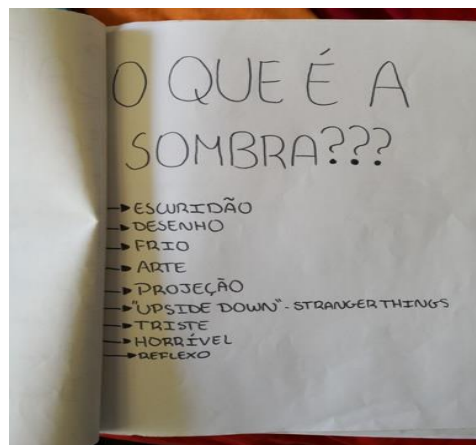 O QUE É A
SOMBRA???
→ESCURIDÃO
→DESENHO
→FRIO
→ARTE
→PROJEÇÃO
→"UPSIDE DOWN"-STRANGER THINGS
→TRISTE
→HORRÍVEL
→REFLEXO